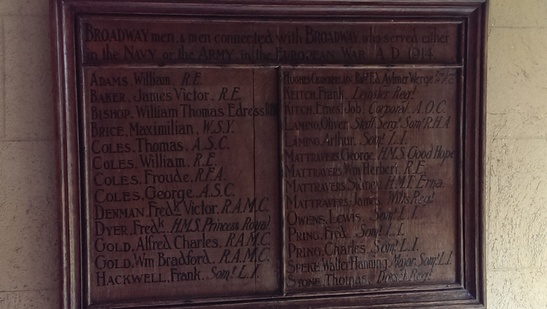 BROADWAY men, & men connected with BROADWAY, who served either
in the NAVY, or the ARMY, in the EUROPEAN WAR. A.D. 1914.
ADAMS, William, R.E.
BAKER, James Victor, R.E.
BISHOP, William Thomas Edress
BRICE, Maximilian, W.S.Y.
COLES, Thomas, A.S.C.
COLES, William, R.E.
COLES, Froude, R.F.A.
COLES, George, A.S.C.
DENMAN, Fredk Victor, R.A.M.C.
DYER, Fredk H.M.S. Princess Royal
GOLD, Alfred Charles, R.A.M.C.
GOLD, Wm Bradford, R.A.M.C.
HACKWELL, Frank, Somt L.I.
Aylmer Werge
KEITCH, Frank, Regt
KITCH, Ernest Job, Corporal A.O.C.
LAMING, Oliver, Staff Sergt Somt R.H.A.
LAMING, Arthur, Somt L.I.
MATTRAVERS, George, H.M.S. Good Hope
MATTRAVERS, Wm Herbert, R.E.
MATTRAVERS, Sidney, H.M.T.
MATTRAVERS, James, Wilts Regt
OWENS, Lewis, Somt L.I.
PRING, Fred, Somt L.I.
PRING, Charles, Somt L.I.
SPEKE, Walter Hanning, Major Somt L.I.
STONE, Thomas, Dorset Regt